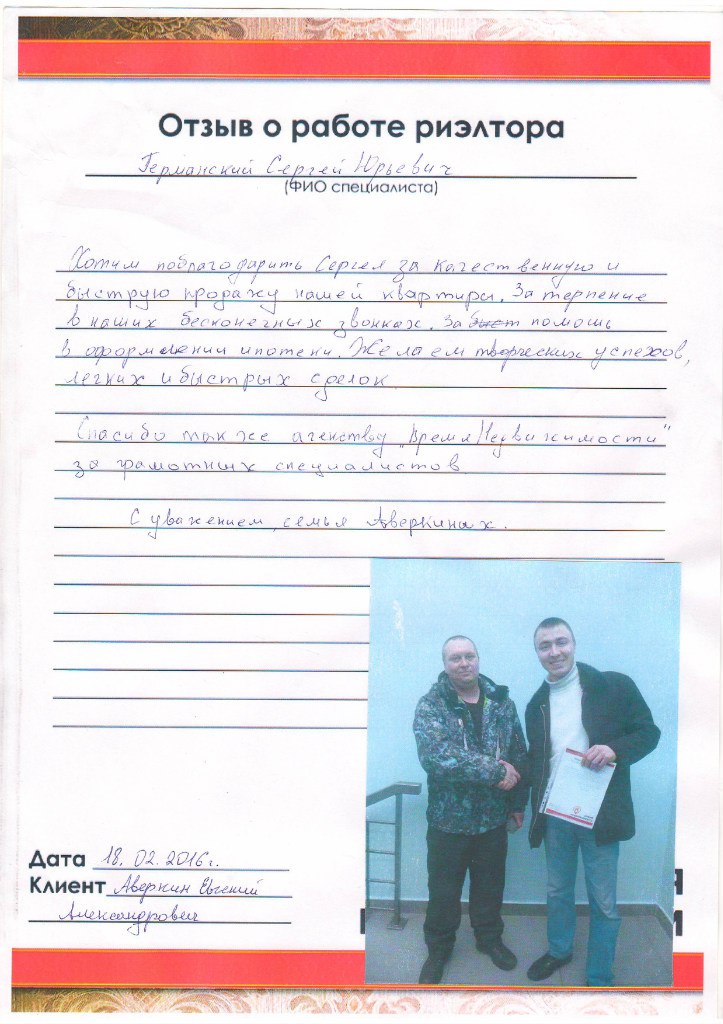 Отзыв о работе риэлтора
Германский Сергей Юрьевич
(ФИО специалиста)
Хотим поблагодарить Сергея за качественную и
быструю продажу нашей квартиры. За терпение
в наших бесконечных звонках. За помощь
в оформлении ипотеки. Желаем творческих успехов,
легких и быстрых сделок.
Спасибо также агенству „Время Недвижимости"
за грамотных специалистов
С уважением, семья Аверкиных.
Дата 18.02.2016г.
Клиент Аверкин Евгений
Александрович